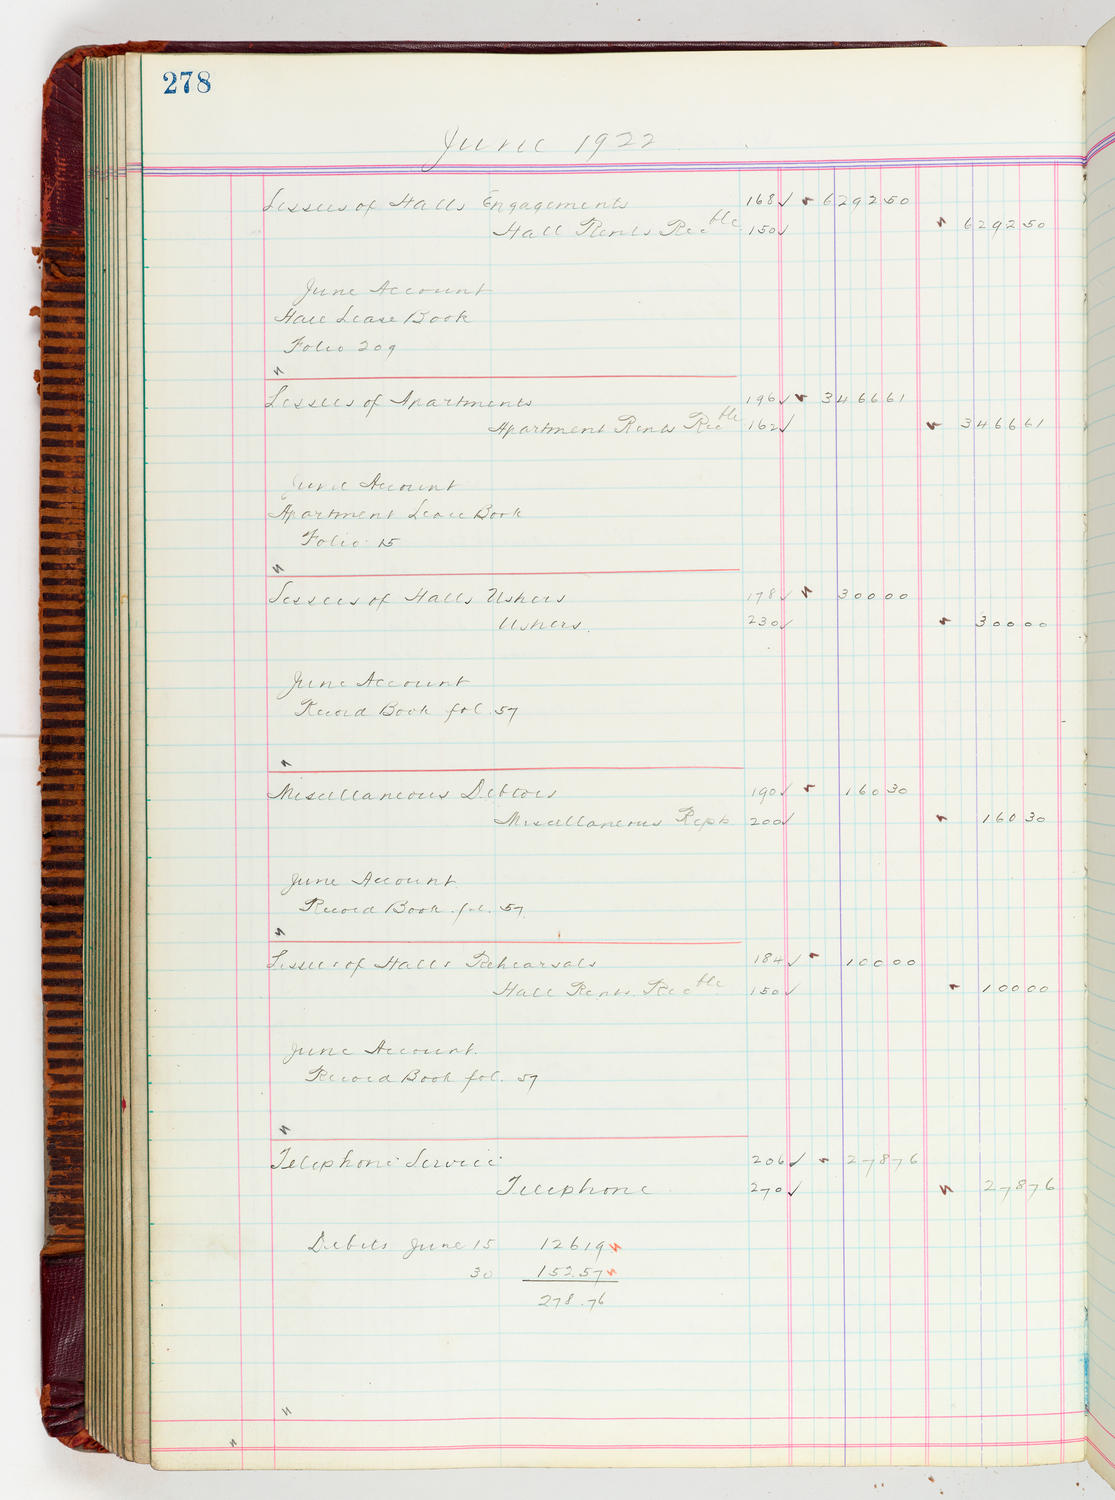 278
June 1922
Lessees of Halls Engagements 168✓ 6292 50
Hall Rents Rec ble 150✓ 6292 50
June Account
Hall Lease Book
Folio 209
Lessees of Apartments 196✓ 3466 61
Apartment Rents Rec ble 162✓ 3466 61
June Account
Apartment Lease Book
Folio 15
Lessees of Halls Ushers 178✓ 300 00
Ushers. 230✓ 300 00
June Account
Record Book fol. 57
Miscellaneous Debtors 190✓ 160 30
Miscellaneous Repts 200✓ 160 30
June Account
Record Book fol. 57
Lessees of Halls Rehearsals 184✓ 100 00
Hall Rents Rec ble 150✓ 100 00
June Account.
Record Book fol. 57
Telephone Service 206✓ 278 76
Telephone 270✓ 278 76
Debits June 15 126 19
30 152.57
278.76